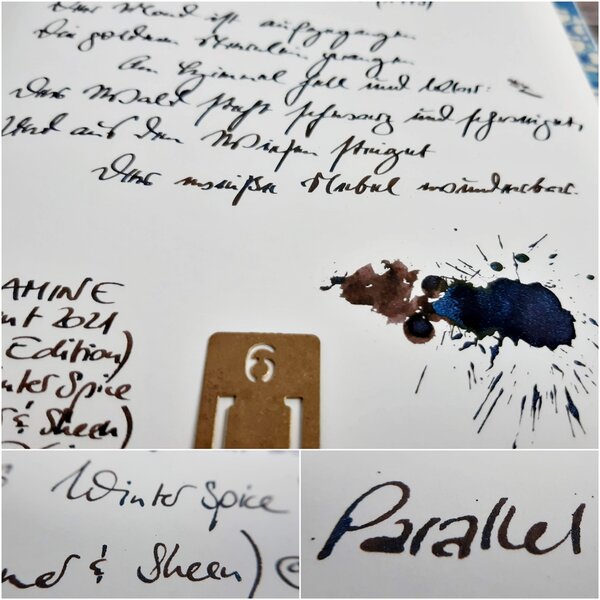 Der Mond ist aufgegangen
Die goldnen Sternlein prangen
Am Himmel hell und klar:
Der Wald steht schwarz und schweiget,
Und aus den Wiesen steiget
Der weiße Nebel wunderbar.
AMINE
nt 2021
Edition)
nter Spice
r & Sheen)
6
Winter Spice
mer & Sheen)
Parallel